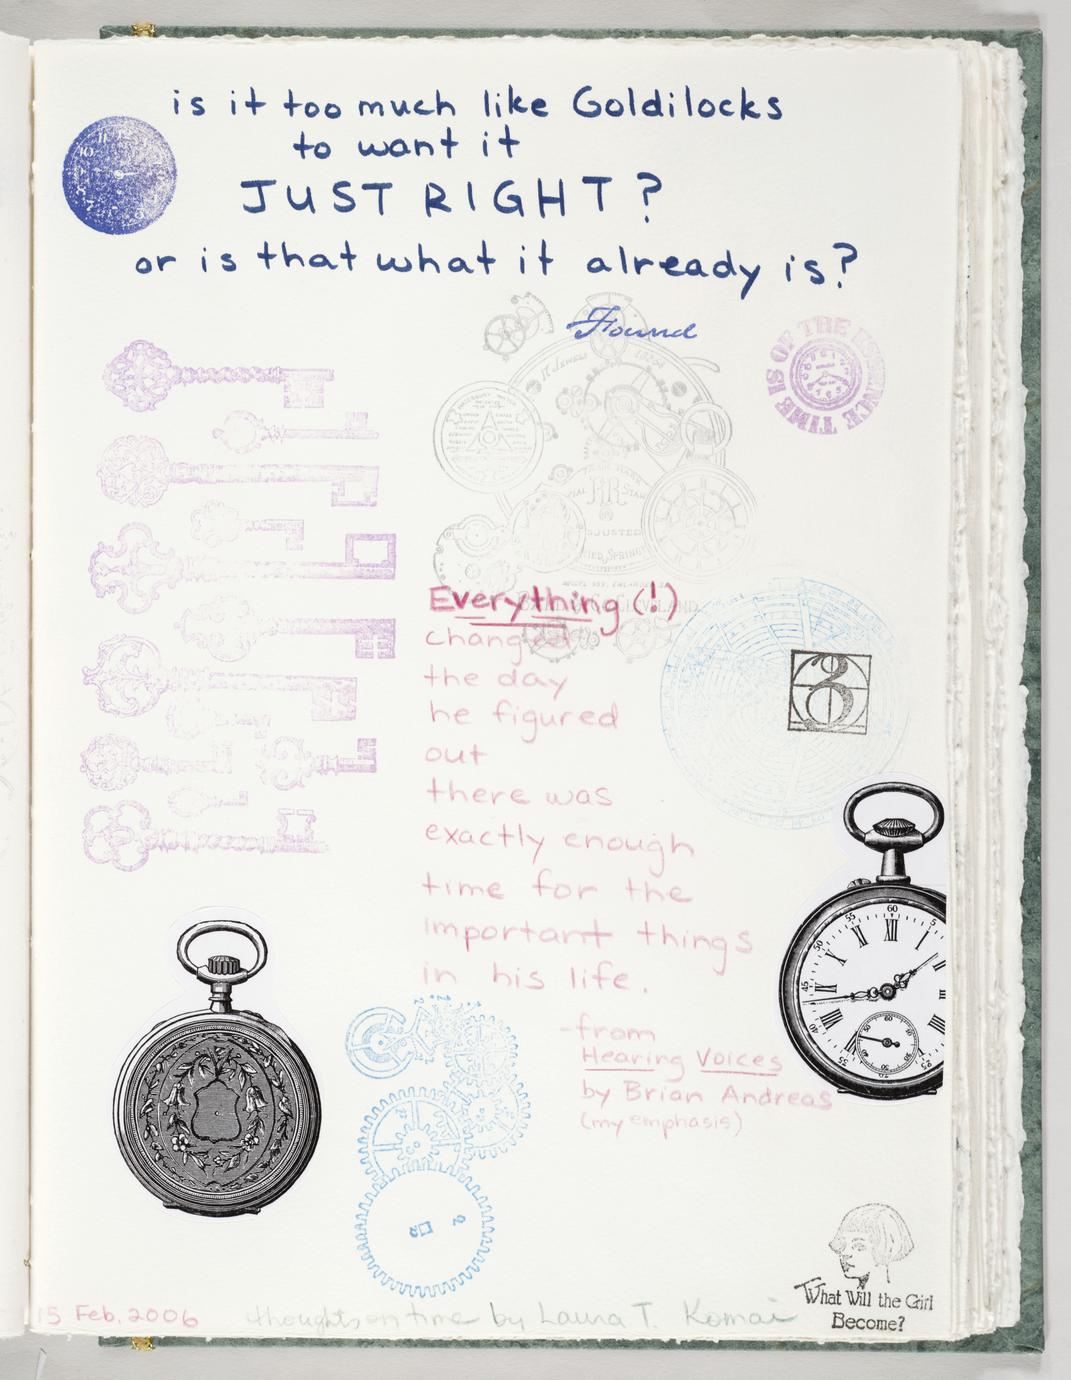 is it too much like Goldilocks
to want it
JUST RIGHT?
or is that what it already is?
Found
TIME IS OF THE ESSENCE
17 JEWELS
RR
ADJUSTED
Everything (!)
CLEVELAND
changed
the day
he figured
out
there was
exactly enough
time for the
important things
in his life.
3
-from
Hearing Voices
by Brian Andreas
(my emphasis)
What Will the Girl
Become?
15 Feb, 2006 thoughts on time by Laura T. Komai